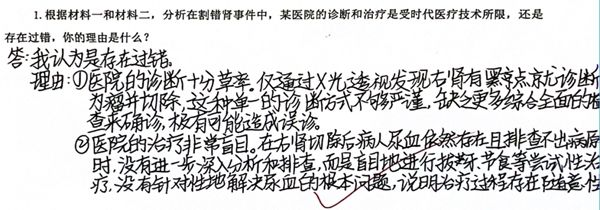 1.根据材料一和材料二，分析在割错肾事件中，某医院的诊断和治疗是受时代医疗技术所限，还是
存在过错，你的理由是什么？
答：我认为是存在过错。
理由：①医院的诊断十分草率。仅通过X光透视发现右肾有黑点就诊断
为瘤并切除，这种单一的诊断方式不够严谨，缺乏更多综合全面的检
查来确诊，极有可能造成误诊。
②医院的治疗非常盲目。在右肾切除后病人尿血依然存在且排查不出病原
时，没有进一步深入分析和排查，而是盲目地进行拔牙、节食等尝试性治
疗，没有针对性地解决尿血的根本问题，说明治疗过程存在随意性